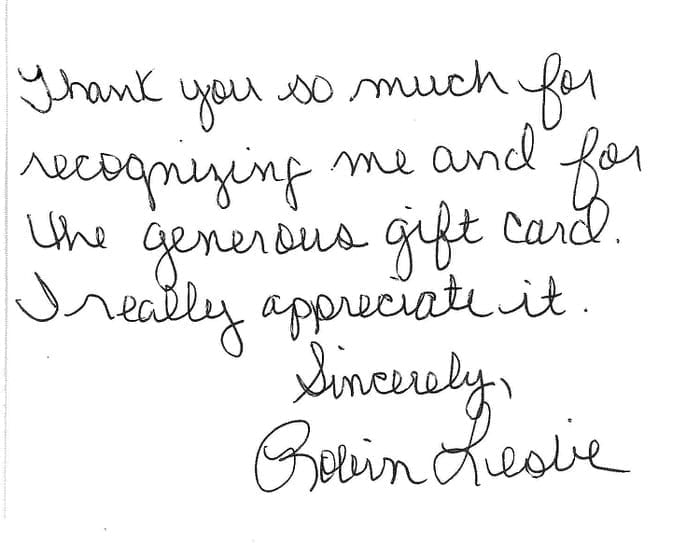 Thank you so much for
recognizing me and for
the generous gift card.
I really appreciate it.
Sincerely,
Robin Leslie